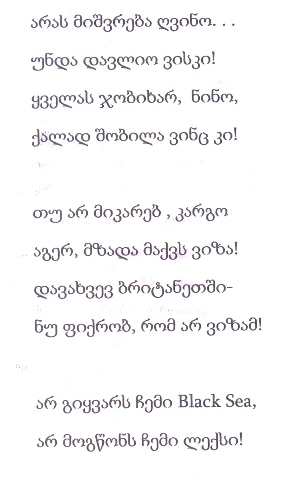 არას მიშვრება ღვინო. . .
უნდა დავლიო ვისკი!
ყველას ჯობიხარ, ნინო,
ქალად შობილა ვინც კი!
თუ არ მიკარებ , კარგო
აგერ, მზადა მაქვს ვიზა!
დავახვევ ბრიტანეთში-
ნუ ფიქრობ, რომ არ ვიზამ!
არ გიყვარს ჩემი Black Sea,
არ მოგწონს ჩემი ლექსი!